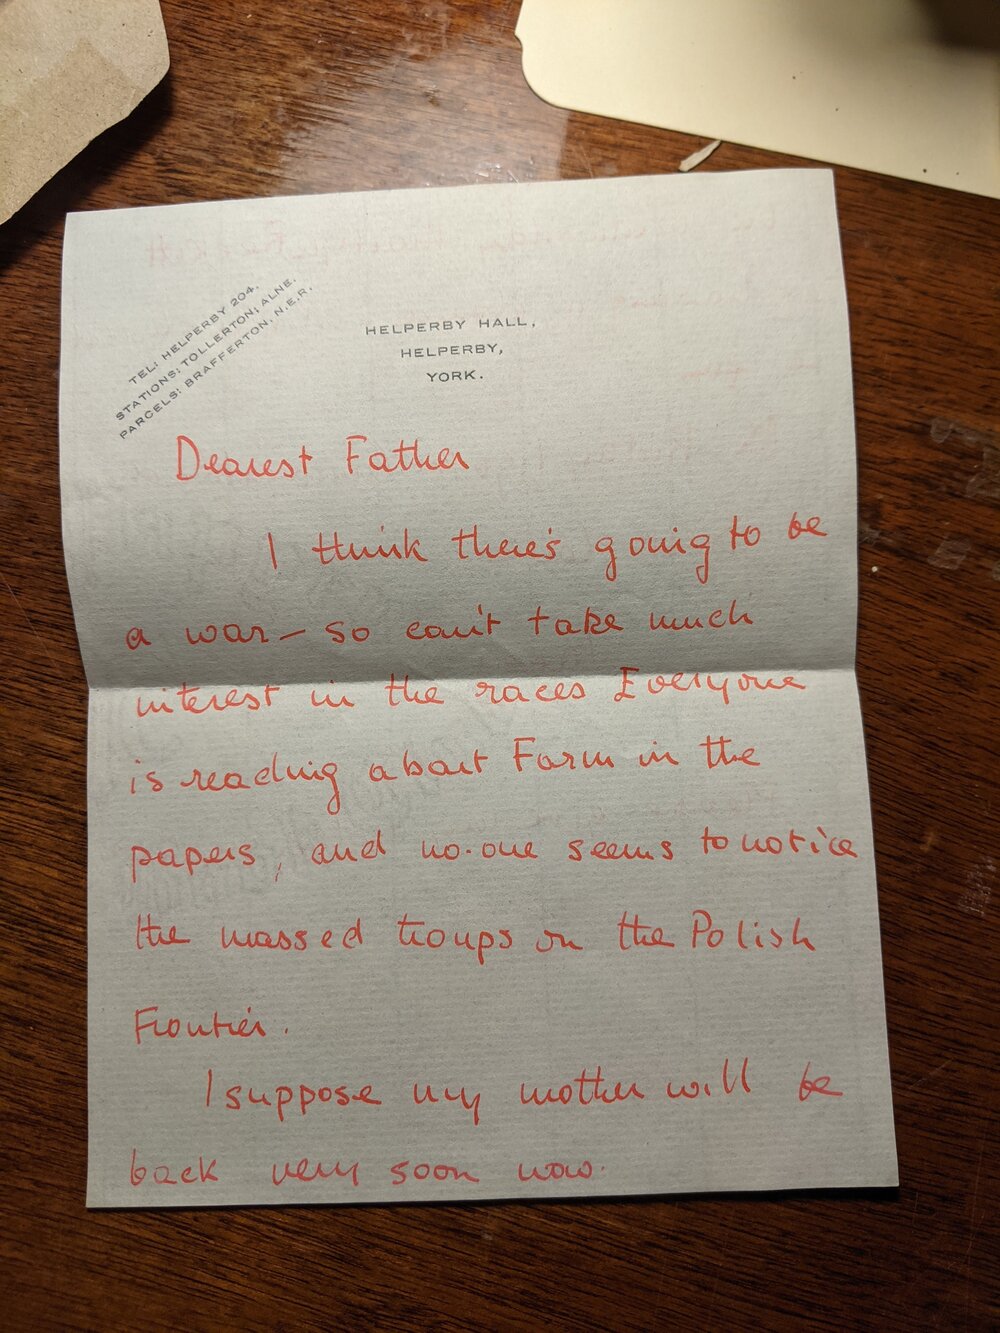 TEL: HELPERBY 204.
STATIONS: TOLLERTON, ALNE.
PARCELS: BRAFFERTON, N.E.R.
HELPERBY HALL,
HELPERBY,
YORK.
Dearest Father
I think there's going to be
a war – so can't take much
interest in the races Everyone
is reading about Form in the
papers, and no-one seems to notice
the massed troups on the Polish
Frontier.
I suppose my mother will be
back very soon now.